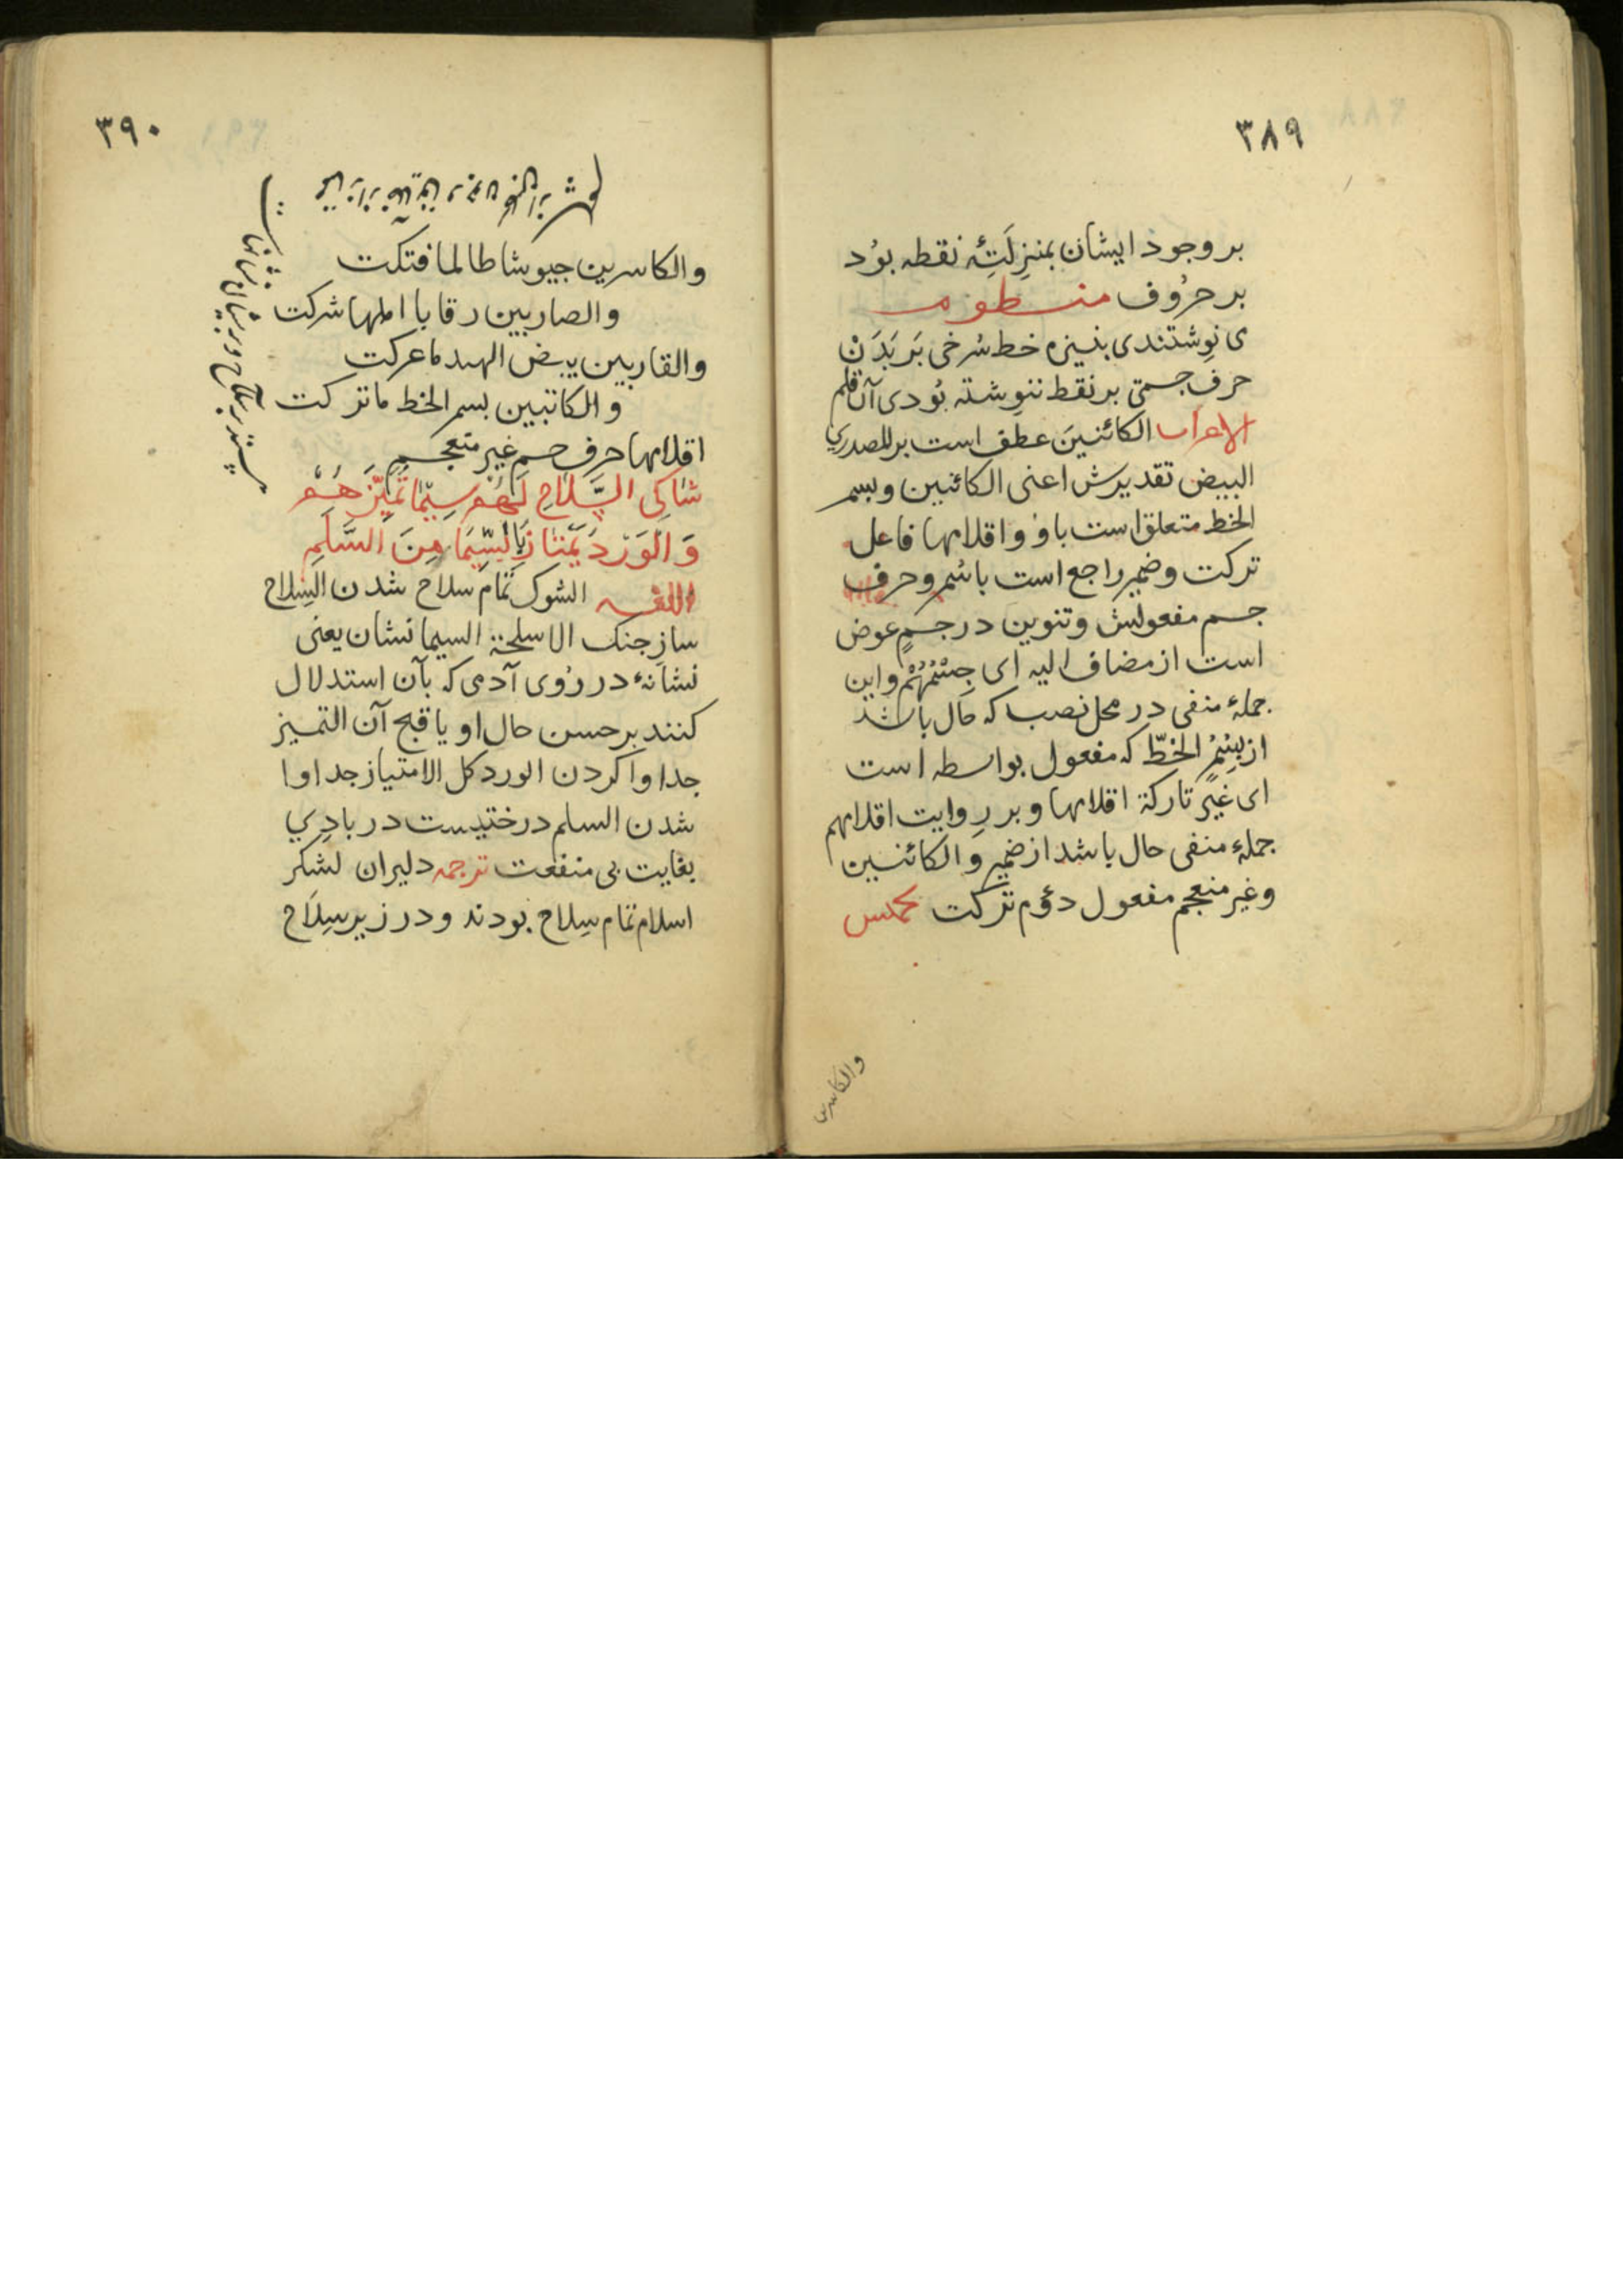 ٣٨٩
بر وجود ایشان بمنزِلَتِهٔ نقطه بوُد
بر حرُوف منظوم
ی نوِشتندی بنیزه خط سُرخی بَر بَدَنْ
حرف جسمتی بر نقط ننوِشته بوُدی آن قلم
الاعراب الکاتبینَ عطف است بر المصدری
البیض تقدیرش اعنی الکاتبین وبسمر
الخط متعلق است باو و اقلامها فاعل
ترکت وضمیر راجع است باسمر وحرف
جسم مفعولش وتنوین در جسمٍ عوض
است از مضاف الیه ای جِسْمُهُمْ واین
جملهٔ منفی در محل نصب که حال باشد
از بسُمْرِ الخطّ که مفعول بواسطه است
ای غیر تارکة اقلامها و بر روایت اقلامهم
جملهٔ منفی حال باشد از ضمیر والکاتبین
وغیر منعجم مفعول دوُم ترکت مخمس
والکاسرین
٣٩٠
والکاسرین جیوشا طالما فتکت
والضاربین رقابا املها شرکت
والقاربین ببیض الهند ما عرکت
والکاتبین بسمر الخط ما ترکت
اقلامها حرف جسم غیر منعجم
شَاکِی السِّلَاحِ لَهُمْ سِیْمَا تُمَیِّزُهُمْ
وَالْوَرْدُ یَمْتَازُ بِالسِّیْمَا مِنَ السَّلَمِ
اللغه الشوک تمام سلاح شدن السِلاح
سازِ جنک الاسلحة السیما نشان یعنی
نشانهٔ در رُوی آدمی که بآن استدلال
کنند بر حسن حال او یا قبح آن التمییز
جدا وا کردن الورد کل الامتیاز جدا وا
شدن السلم درختیست در بادِیِ
بغایت بی منفعت ترجمه دلیران لشکر
اسلام تمام سِلاح بودند ودر زیر سِلَاح